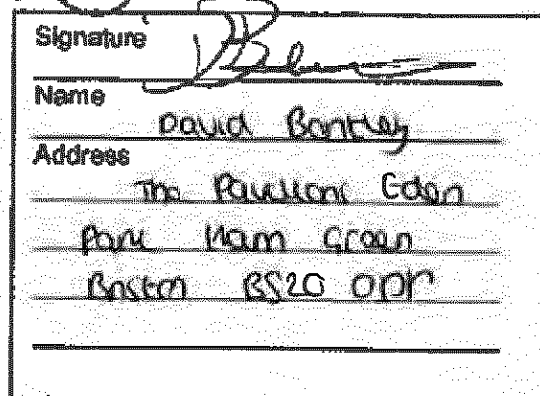 Signature
Name
David Bentley
Address
The Pavilions Eden
Park Ham Green
Bristol BS20 0DD